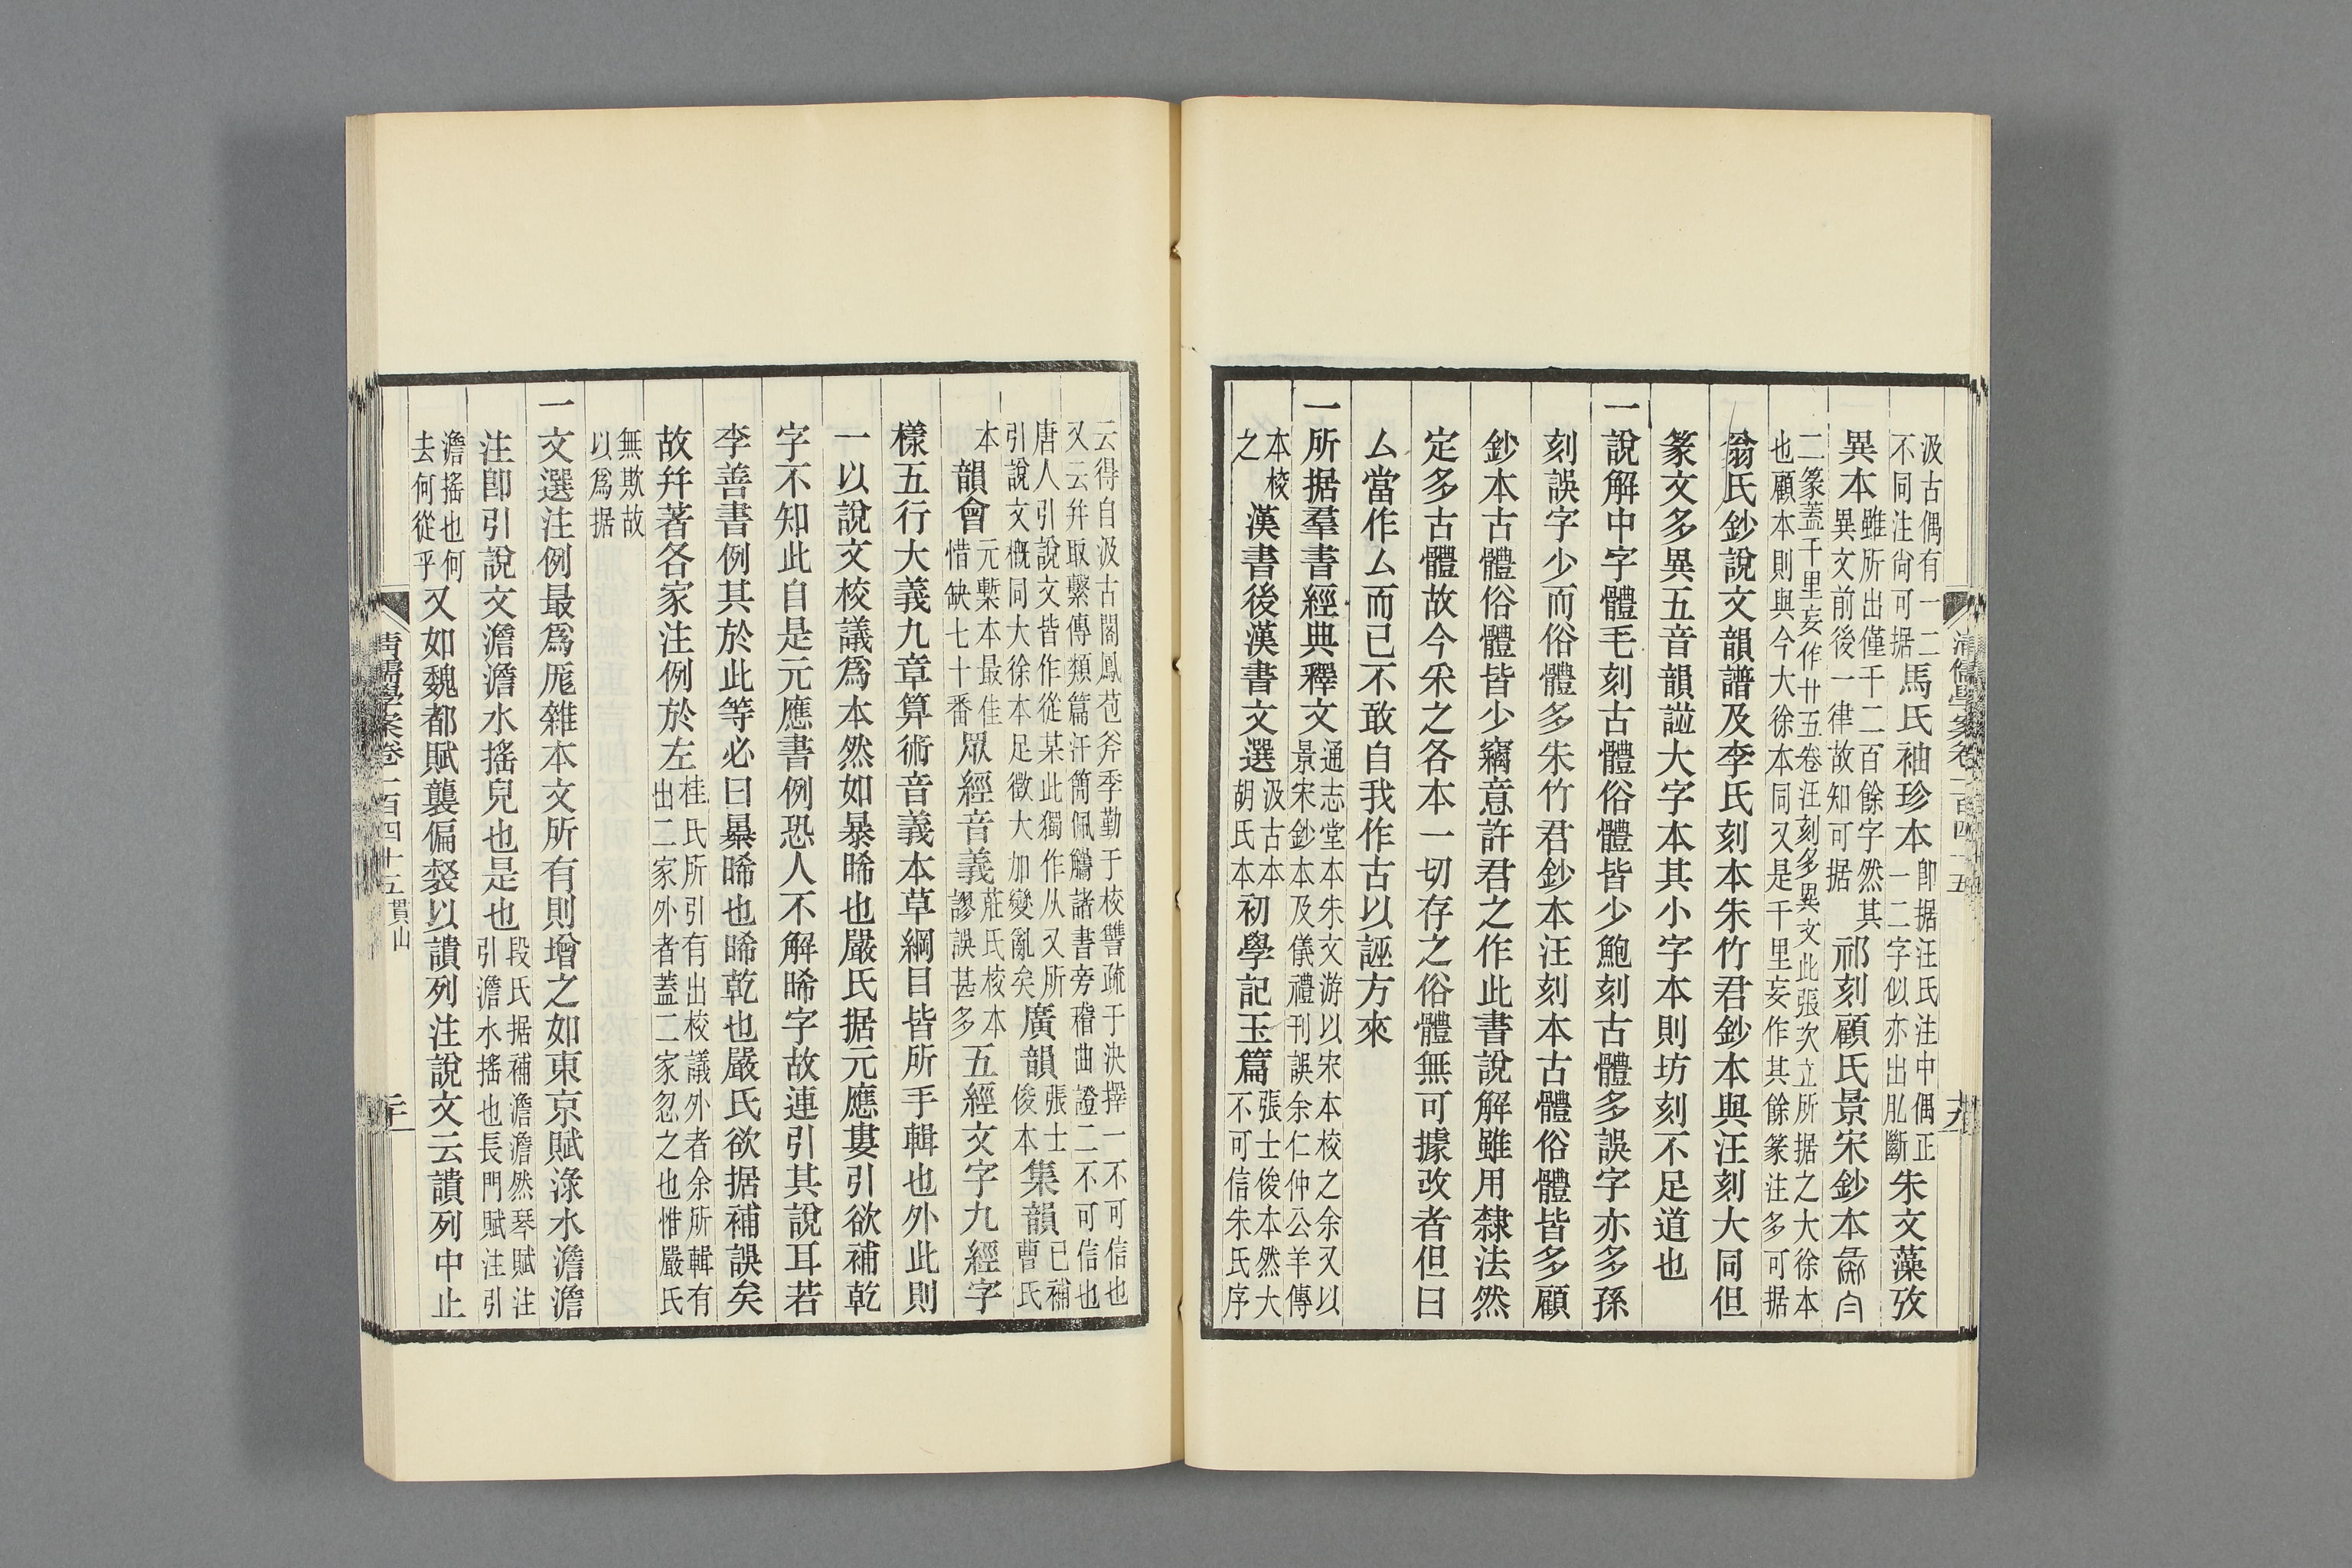 清儒學案卷二百四十五
十九
汲古偶有一二
不同注尙可据
馬氏袖珍本
卽据汪氏注中偶正
一二字似亦出肊斷
朱文藻攷
異本
雖所出僅千二百餘字然其
異文前後一律故知可据
祁刻顧氏景宋鈔本
二篆蓋千里妄作廿五卷汪刻多異文此張次立所据之大徐本
也顧本則與今大徐本同又是千里妄作其餘篆注多可据
翁氏鈔說文韻譜及李氏刻本朱竹君鈔本與汪刻大同但
篆文多異五音韻譜大字本其小字本則坊刻不足道也
一說解中字體毛刻古體俗體皆少鮑刻古體多誤字亦多孫
刻誤字少而俗體多朱竹君鈔本汪刻本古體俗體皆多顧
鈔本古體俗體皆少竊意許君之作此書說解雖用隸法然
定多古體故今采之各本一切存之俗體無可據改者但曰
厶當作厶而已不敢自我作古以誣方來
一所据羣書經典釋文
通志堂本朱文游以宋本校之余又以
景宋鈔本及儀禮刊誤余仁仲公羊傳
本校
之
漢書後漢書文選
汲古本
胡氏本
初學記玉篇
張士俊本然大
不可信朱氏序
云得自汲古閣鳳苞斧季勤于校讐疏于決擇一不可信也
又云幷取繫傳類篇汗簡佩觿諸書旁稽曲證二不可信也
唐人引說文皆作從某此獨作从又所
引說文槪同大徐本足徵大加變亂矣
廣韻
張士
俊本
集韻
已補
曹氏
本
韻會
元槧本最佳
惜缺七十番
眾經音義
莊氏校本
謬誤甚多
五經文字九經字
樣五行大義九章算術音義本草綱目皆所手輯也外此則
一以說文校議爲本然如暴晞也嚴氏据元應婁引欲補乾
字不知此自是元應書例恐人不解晞字故連引其說耳若
李善書例其於此等必曰㬥晞也晞乾也嚴氏欲据補誤矣
故幷著各家注例於左
桂氏所引有出校議外者余所輯有
出二家外者蓋二家忽之也惟嚴氏
無欺故
以爲据
一文選注例最爲厖雜本文所有則增之如東京賦淥水澹澹
注卽引說文澹澹水搖皃也是也
段氏据補澹澹然琴賦注
引澹水搖也長門賦注引
澹搖也何
去何從乎
又如魏都賦襲偏裻以讃列注說文云讃列中止
清儒學案卷二百四十五
貫山
二十